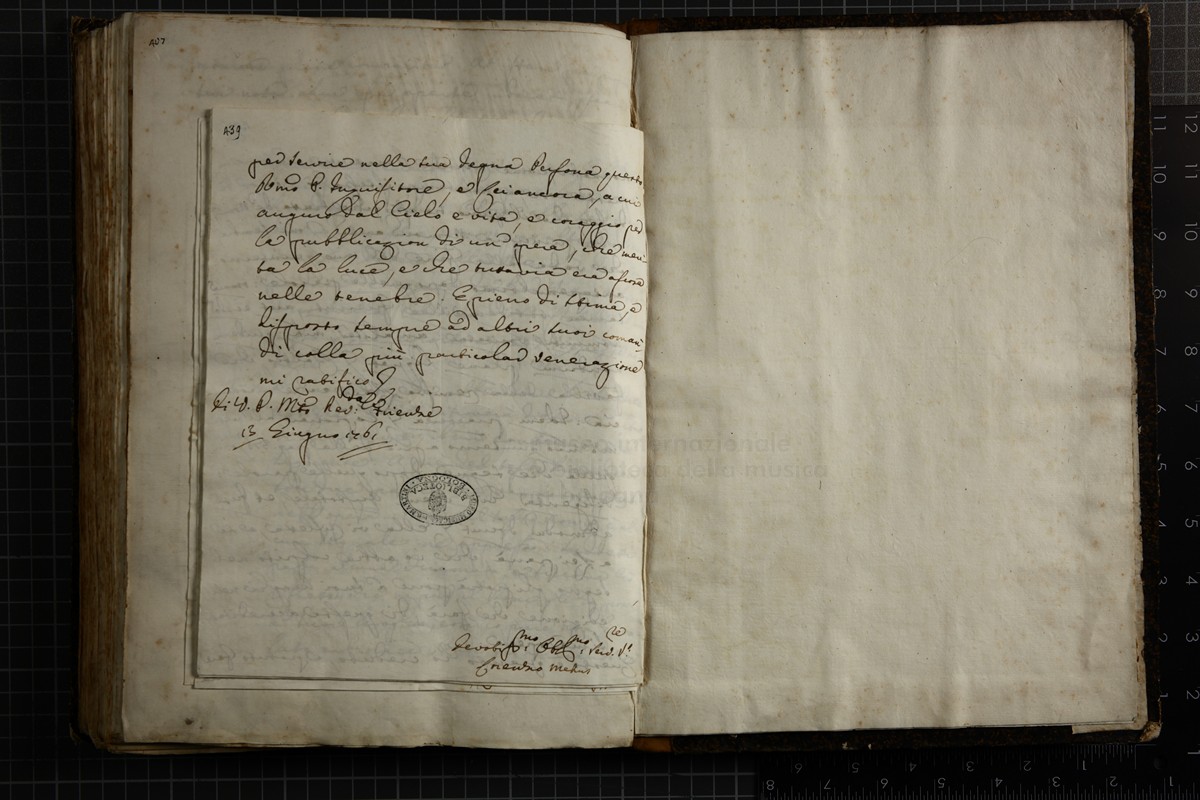 A07
A39
per servire nella sua degna Persona questo
Rmo P. Inquisitore, e Lei ancora, a cui
auguro dal Cielo e vita, e coraggio per
la pubblicazion di un' opera, che meri
ta la luce, e che tuttavia era ascosa
nelle tenebre. E pieno di stima, e
disposto sempre ad altri suoi coman
di colla più particolar venerazione
mi ratifico
Di V. P. Mto Rev.
Firenze
13 Giugno 1761
BIBLIOTECA
BOLOGNA
museo internazionale
biblioteca della musica
Devotiss.mo Obbl.mo Serv. Vre
Lorenzo Mehus